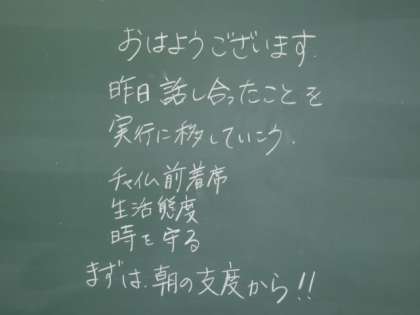 おはようございます.
昨日話し合ったことを
実行に移していこう.
チャイム前着席
生活態度
時を守る
まずは.朝の支度から!!